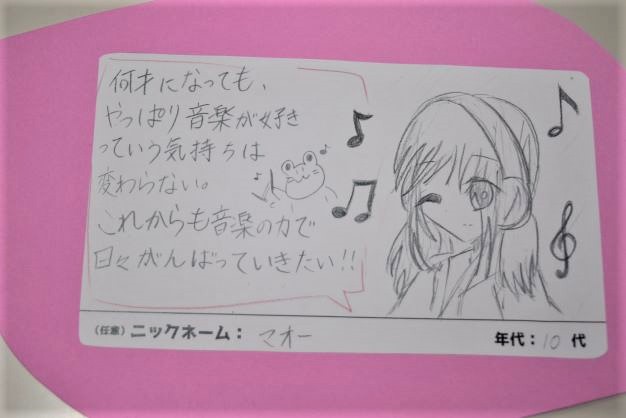 何才になっても、
やっぱり音楽が好き
っていう気持ちは
変わらない。
これからも音楽の力で
日々がんばっていきたい!!
(任意)ニックネーム: マオー
年代:10代